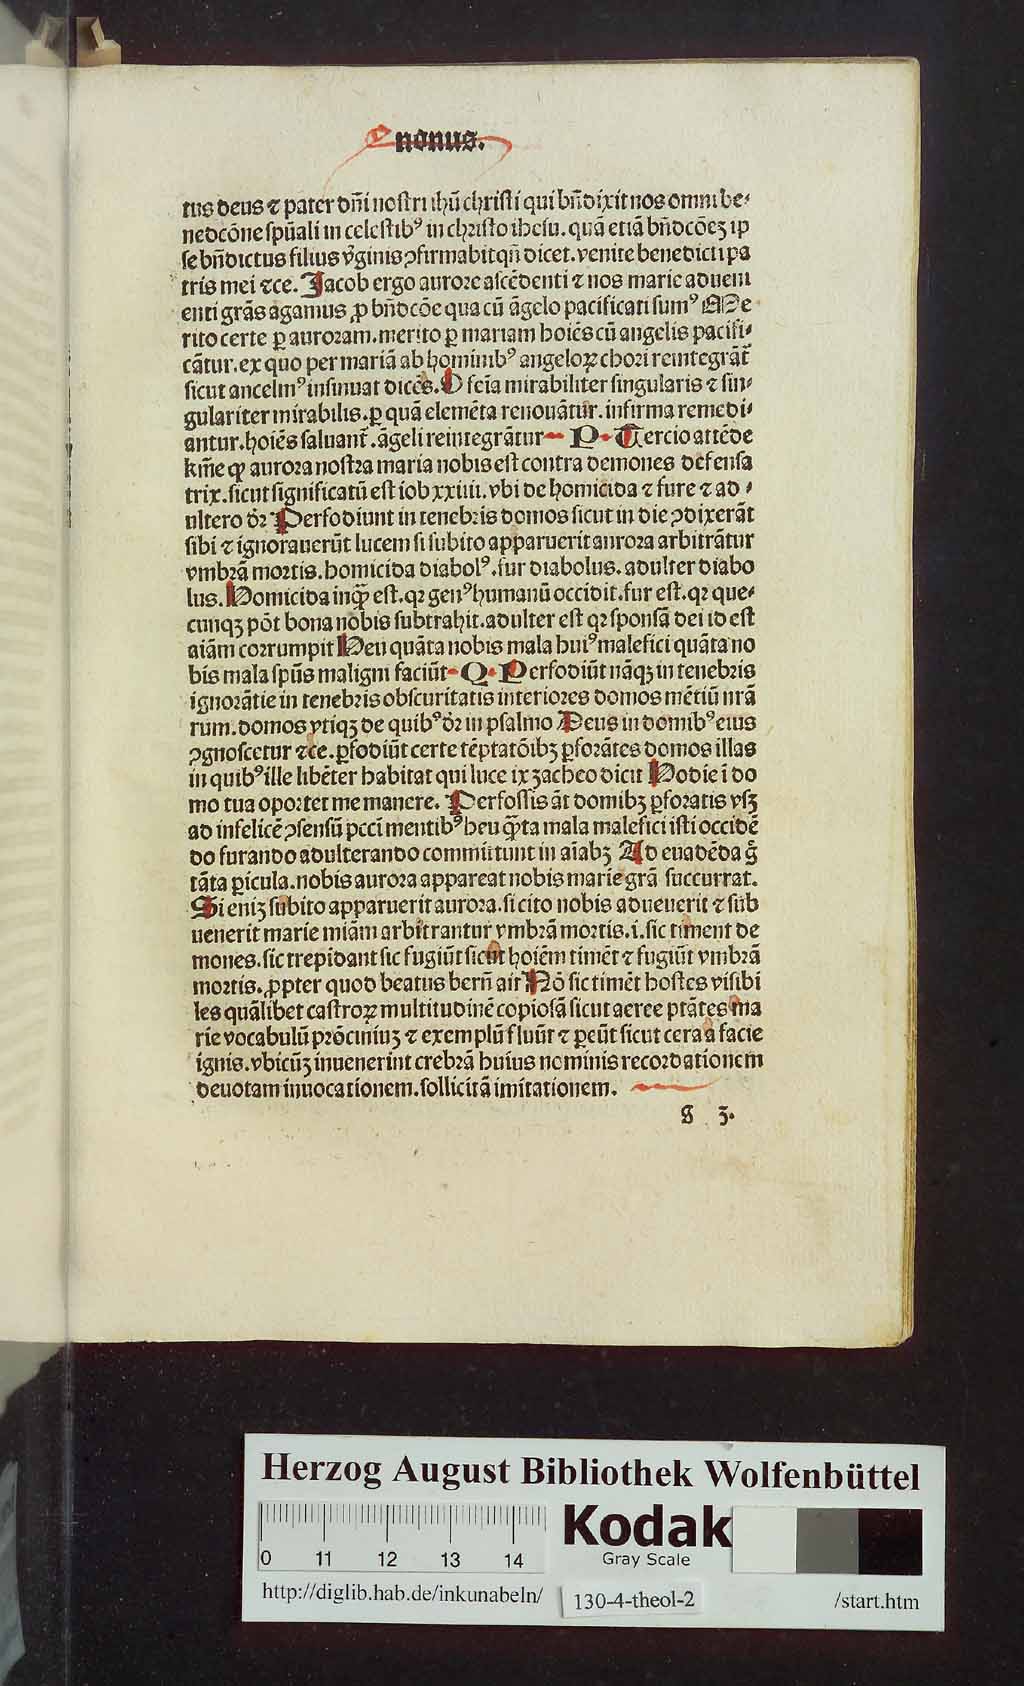 nonus.
tus deus ⁊ pater dn̄i nostri ihū christi qui bn̄dixit nos omni be⸗
nedcōne spūali in celestibꝰ in christo ihesu. quā etiā bn̄dcōeꝫ ip
se bn̄dictus filius v̓ginis ꝯfirmabit qn̄ dicet. venite benedicti pa
tris mei ⁊ce. Jacob ergo aurore ascēdenti ⁊ nos marie adueni
enti grās agamus ꝓ bn̄dcōe qua cū āgelo pacificati sumꝰ Me
rito certe ꝑ auroram. merito ꝑ mariam hoiēs cū angelis pacifi⸗
cātur. ex quo per mariā ab hominibꝰ angeloꝝ chori reintegrāt̄
sicut ancelmꝰ insinuat dicēs. O feīa mirabiliter singularis ⁊ sin⸗
gulariter mirabilis. ꝑ quā elemēta renouātur. infirma remedi⸗
antur. hoiēs saluant̄. āgeli reintegrātur P. Tercio attēde
km̄e ꝙ aurora nostra maria nobis est contra demones defensa
trix. sicut significatū est iob xxiiii. vbi de homicida ⁊ fure ⁊ ad⸗
ultero dr̄ Perfodiunt in tenebris domos sicut in die ꝯdixerāt
sibi ⁊ ignorauerūt lucem si subito apparuerit aurora arbitrātur
vmbrā mortis. homicida diabolꝰ. fur diabolus. adulter diabo
lus. Homicida inqͣ est. qꝛ genꝰ humanū occidit. fur est. qꝛ que⸗
cunqꝫ pōt bona nobis subtrahit. adulter est qꝛ sponsā dei id est
aiām corrumpit Heu quāta nobis mala huiꝰ malefici quāta no
bis mala spūs maligni faciūt Q. Perfodiūt nāqꝫ in tenebris
ignorātie in tenebris obscuritatis interiores domos mētiū nrā
rum. domos vtiqꝫ de quibꝰ dr̄ in psalmo Deus in domibꝰ eius
ꝯgnoscetur ⁊ce. ꝑfodiūt certe tēptatōibꝫ ꝑforātes domos illas
in quibꝰ ille libēter habitat qui luce ix zacheo dicit Hodie ī do
mo tua oportet me manere. Perfossis āt domibꝫ ꝑforatis vsqꝫ
ad infelicē ꝯsensū pcci mentibꝰ heu qͣta mala malefici isti occidē
do furando adulterando committunt in aīabꝫ Ad euadēda g̊
tāta ꝑicula. nobis aurora appareat nobis marie grā succurrat.
Si eniꝫ subito apparuerit aurora. si cito nobis aduenerit ⁊ sub
uenerit marie miām arbitrantur vmbrā mortis. i. sic timent de
mones. sic trepidant sic fugiūt sicut hoiēm timēt ⁊ fugiūt vmbrā
mortis. ꝓpter quod beatus bern̄ ait Nō sic timēt hostes visibi
les quālibet castroꝝ multitudinē copiosā sicut aeree ptātes ma
rie vocabulū prōciniuꝫ ⁊ exemplū fluūt ⁊ ꝑeūt sicut cera a facie
ignis. vbicūꝫ inuenerint crebrā huius nominis recordationem
deuotam inuocationem. sollicitā imitationem.
S 3.
Herzog August Bibliothek Wolfenbüttel
0 11 12 13 14
Kodak
Gray Scale
http://diglib.hab.de/inkunabeln/ 130-4-theol-2 /start.htm